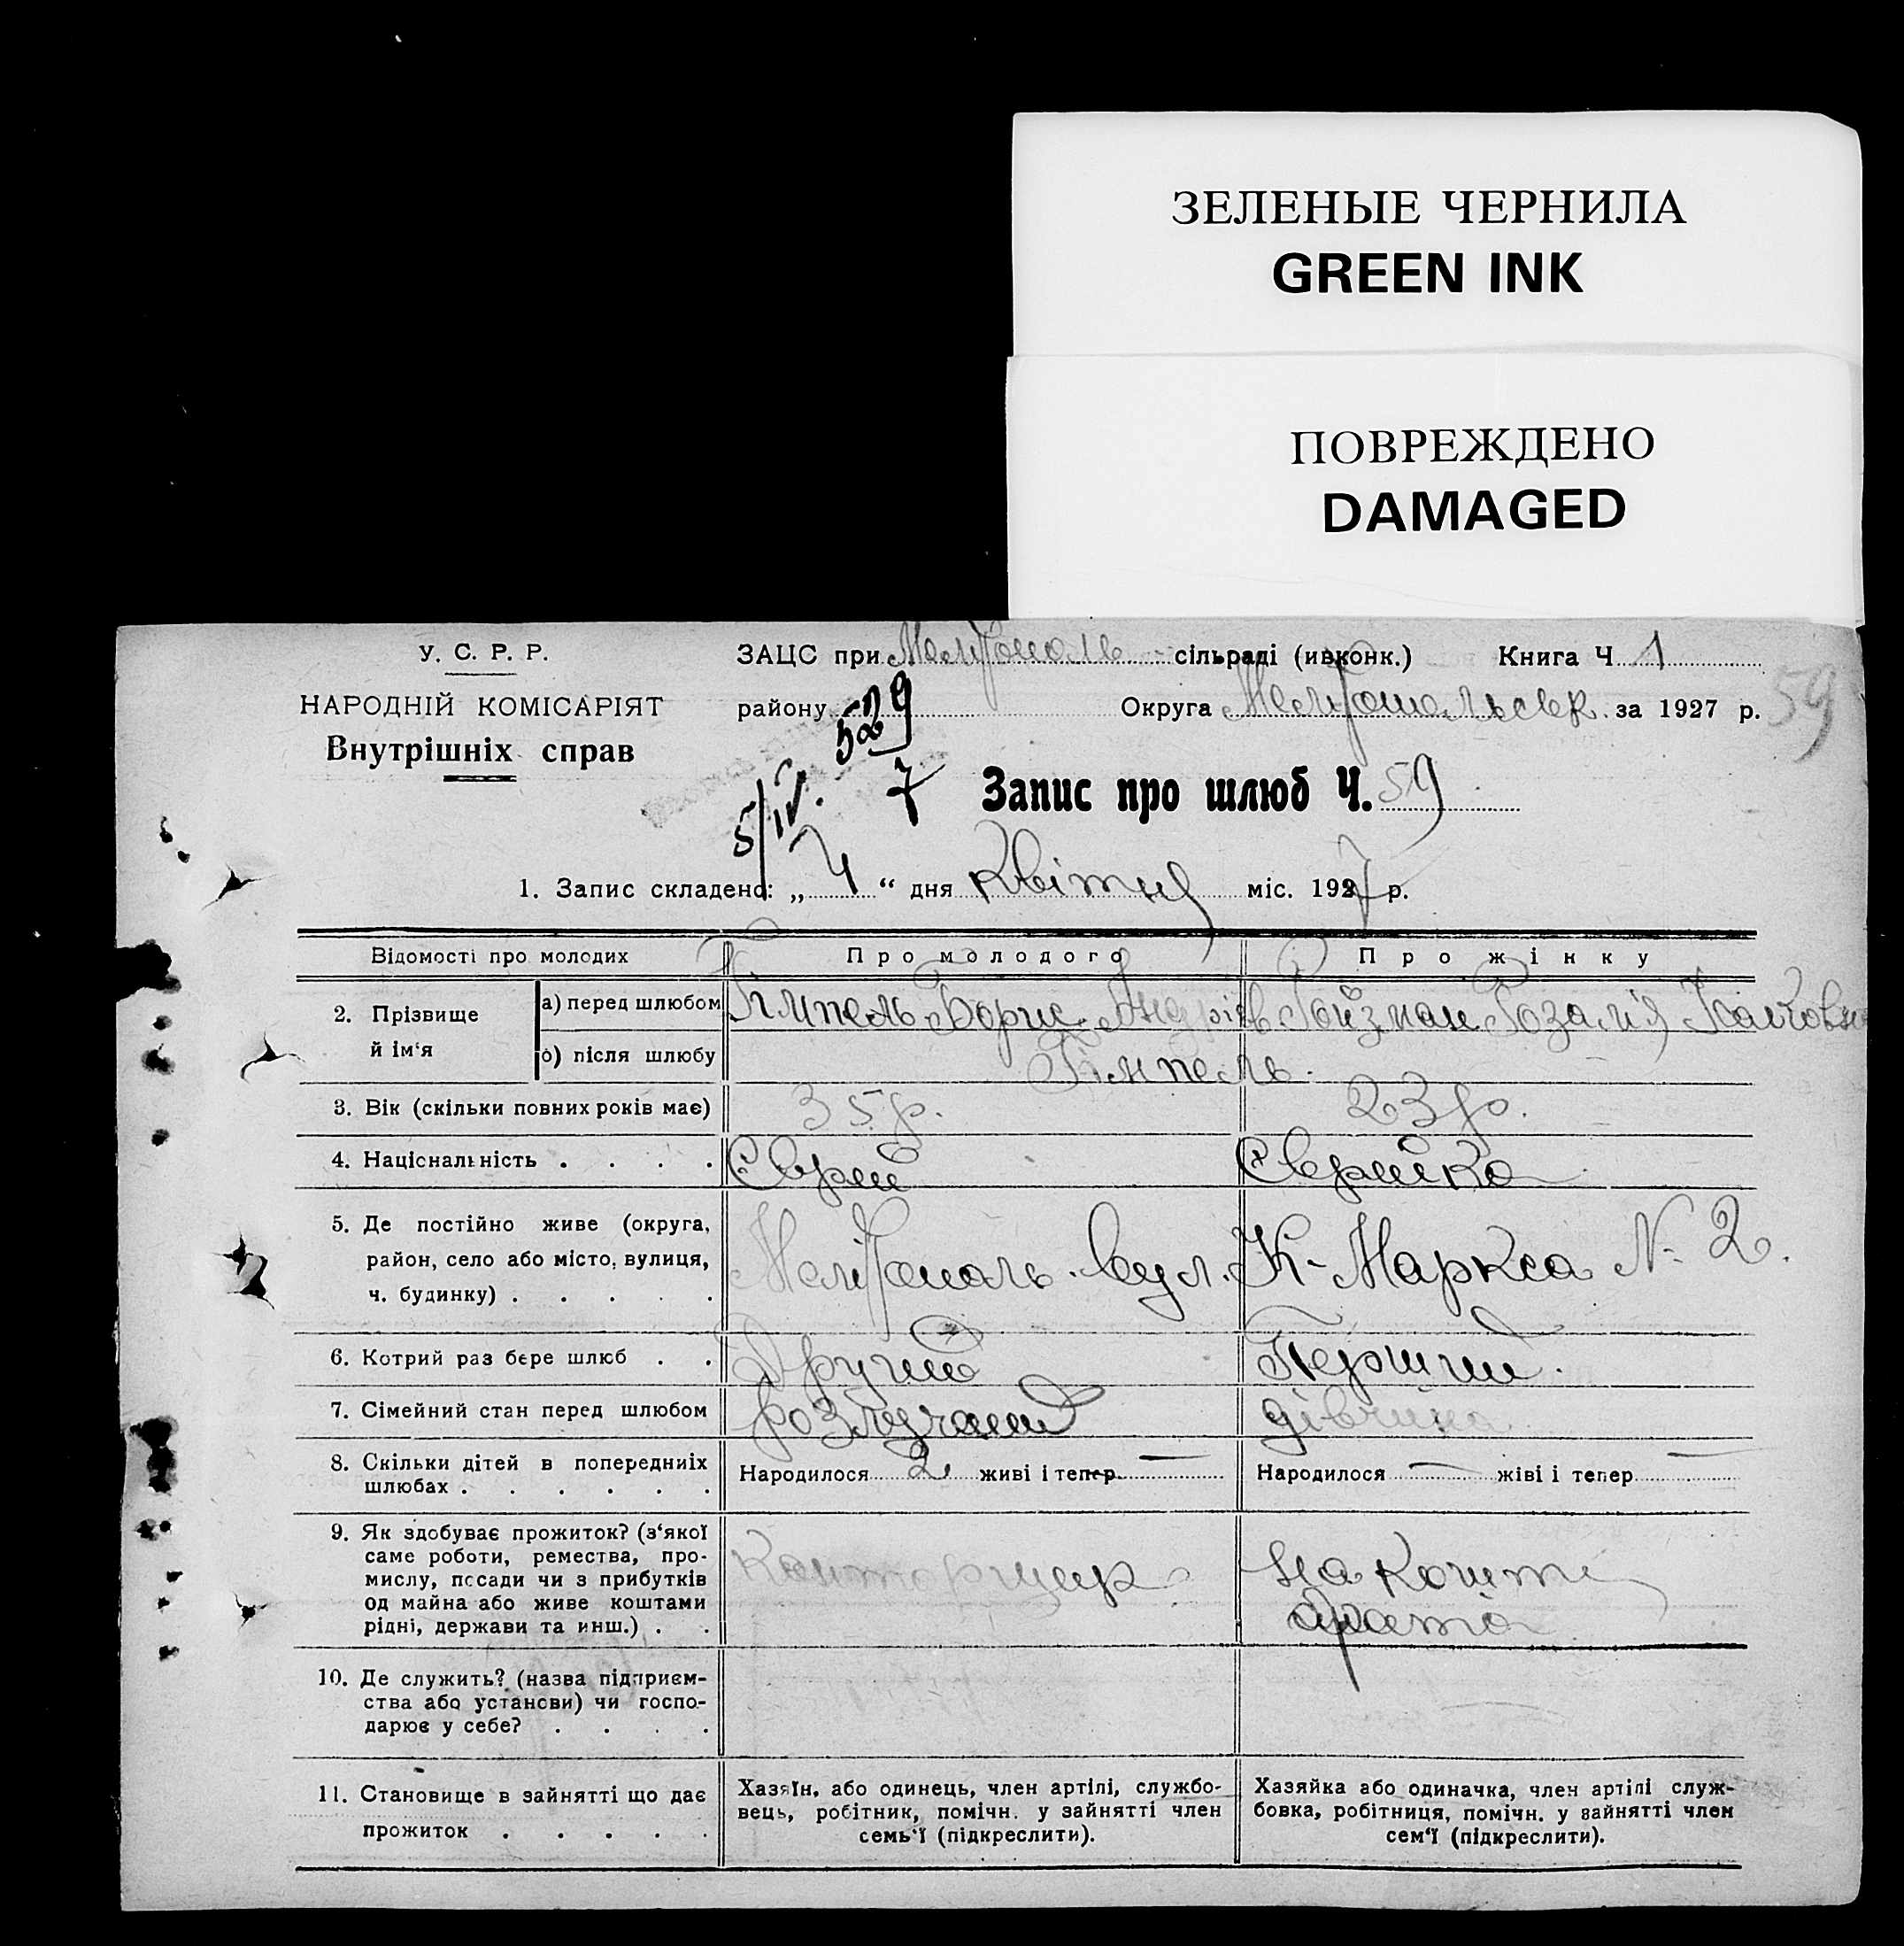 ЗЕЛЕНЫЕ ЧЕРНИЛА
GREEN INK
ПОВРЕЖДЕНО
DAMAGED
У. С. Р. Р.
НАРОДНІЙ КОМІСАРІЯТ
Внутрішніх справ
ЗАЦС при Мелітополь сільраді (ивконк.) Книга Ч 1
району Округа Мелітопольськ. за 1927 р. 59
529
5/IV. 7
Запис про шлюб Ч. 59
1. Запис складено: „ 4 “ дня Квітня міс. 1927 р.
Відомості про молодих Про молодого Про жінку
2. Прізвище й ім‘я
а) перед шлюбом Гімпель Борис Андрієв. Ройзман Розалія
б) після шлюбу Гімпель.
3. Вік (скільки повних років має) 35 р. 23 р.
4. Національність . . . . Єврей Єврейка
5. Де постійно живе (округа,
район, село або місто, вулиця,
ч. будинку) . . . . .
Мелітополь. вул. К-Маркса № 2.
6. Котрий раз бере шлюб . . Другий Перший.
7. Сімейний стан перед шлюбом розлучений дівчина
8. Скільки дітей в попередніх
шлюбах . . . . . .
Народилося 2. живі і тепер — Народилося — жіві і тепер —
9. Як здобуває прожиток? (з‘якої
саме роботи, ремества, про-
мислу, посади чи з прибутків
од майна або живе коштами
рідні, держави та инш.) . .
Конторщик
на кошті
брата
10. Де служить? (назва підприєм-
ства або установи) чи госпо-
дарює у себе? . . . .
11. Становище в зайнятті що дає
прожиток . . . . .
Хазяїн, або одинець, член артілі, службо-
вець, робітник, помічн. у зайнятті член
семь‘ї (підкреслити).
Хазяйка або одиначка, член артілі служ-
бовка, робітниця, помічн. у зайнятті член
сем‘ї (підкреслити).